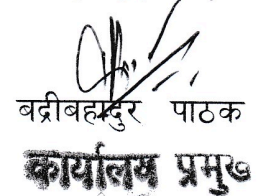 बद्रीबहादुर पाठक
कार्यालय प्रमुख